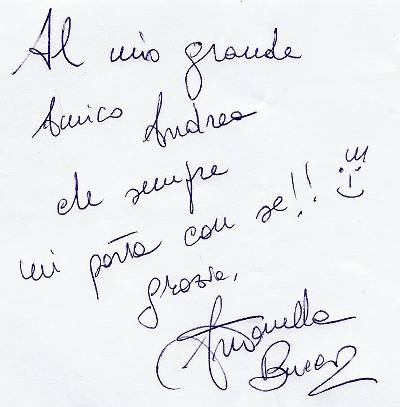 Al mio grande
Amico Andrea
che sempre
mi porta con se!!
grazie,
Antonella